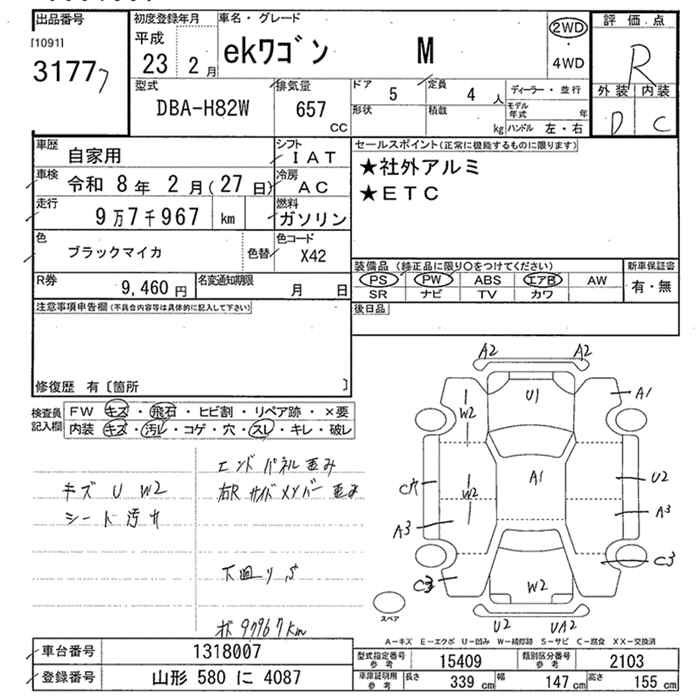 出品番号 初度登録年月 車名・グレード 評価点
[1091] 平成 ekワゴン M 2WD R
31777 23 2月 4WD
型式 排気量 ドア 5 定員 4人 ディーラー・並行 外装 内装
DBA-H82W 657 CC 形状 積載 kg モデル年式 年 ハンドル 左・右 D C
車歴 自家用 シフト IAT セールスポイント(正常に機能するものに限ります)
車検 令和 8年 2月(27日) 冷房 AC ★社外アルミ
走行 9万7千967 km 燃料 ガソリン ★ETC
色 ブラックマイカ 色替 色コード X42
装備品(純正品に限り○をつけてください) 新車保証書
R券 9,460円 名変通知期限 月 日 PS PW ABS エアB AW 有・無
SR ナビ TV カワ
注意事項申告欄(不具合内容等は具体的に記入して下さい) 後日品
修復歴 有〔箇所 〕
検査員記入欄 FW キズ・飛石・ヒビ割・リペア跡・×要
内装 キズ・汚レ・コゲ・穴・スレ・キレ・破レ
エンドパネル歪み
キズ U W2 右Rサイドメンバー歪み
シート汚れ
下廻りS
メ 97967km
A2 A2
U1 A1
W2
A1 U2
C穴 W2 A3
A3
C3 C3
W2
スペア U2 UA2
A-キズ E-エクボ U-凹み W-補修跡 S-サビ C-腐食 XX-交換済
車台番号 1318007 型式指定番号 参考 15409 類別区分番号 参考 2103
登録番号 山形 580 に 4087 車庫証明用 参考 長さ 339 cm 幅 147 cm 高さ 155 cm